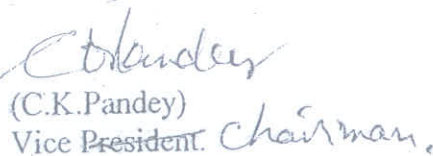 CKPandey
(C.K.Pandey)
Vice President. Chairman.